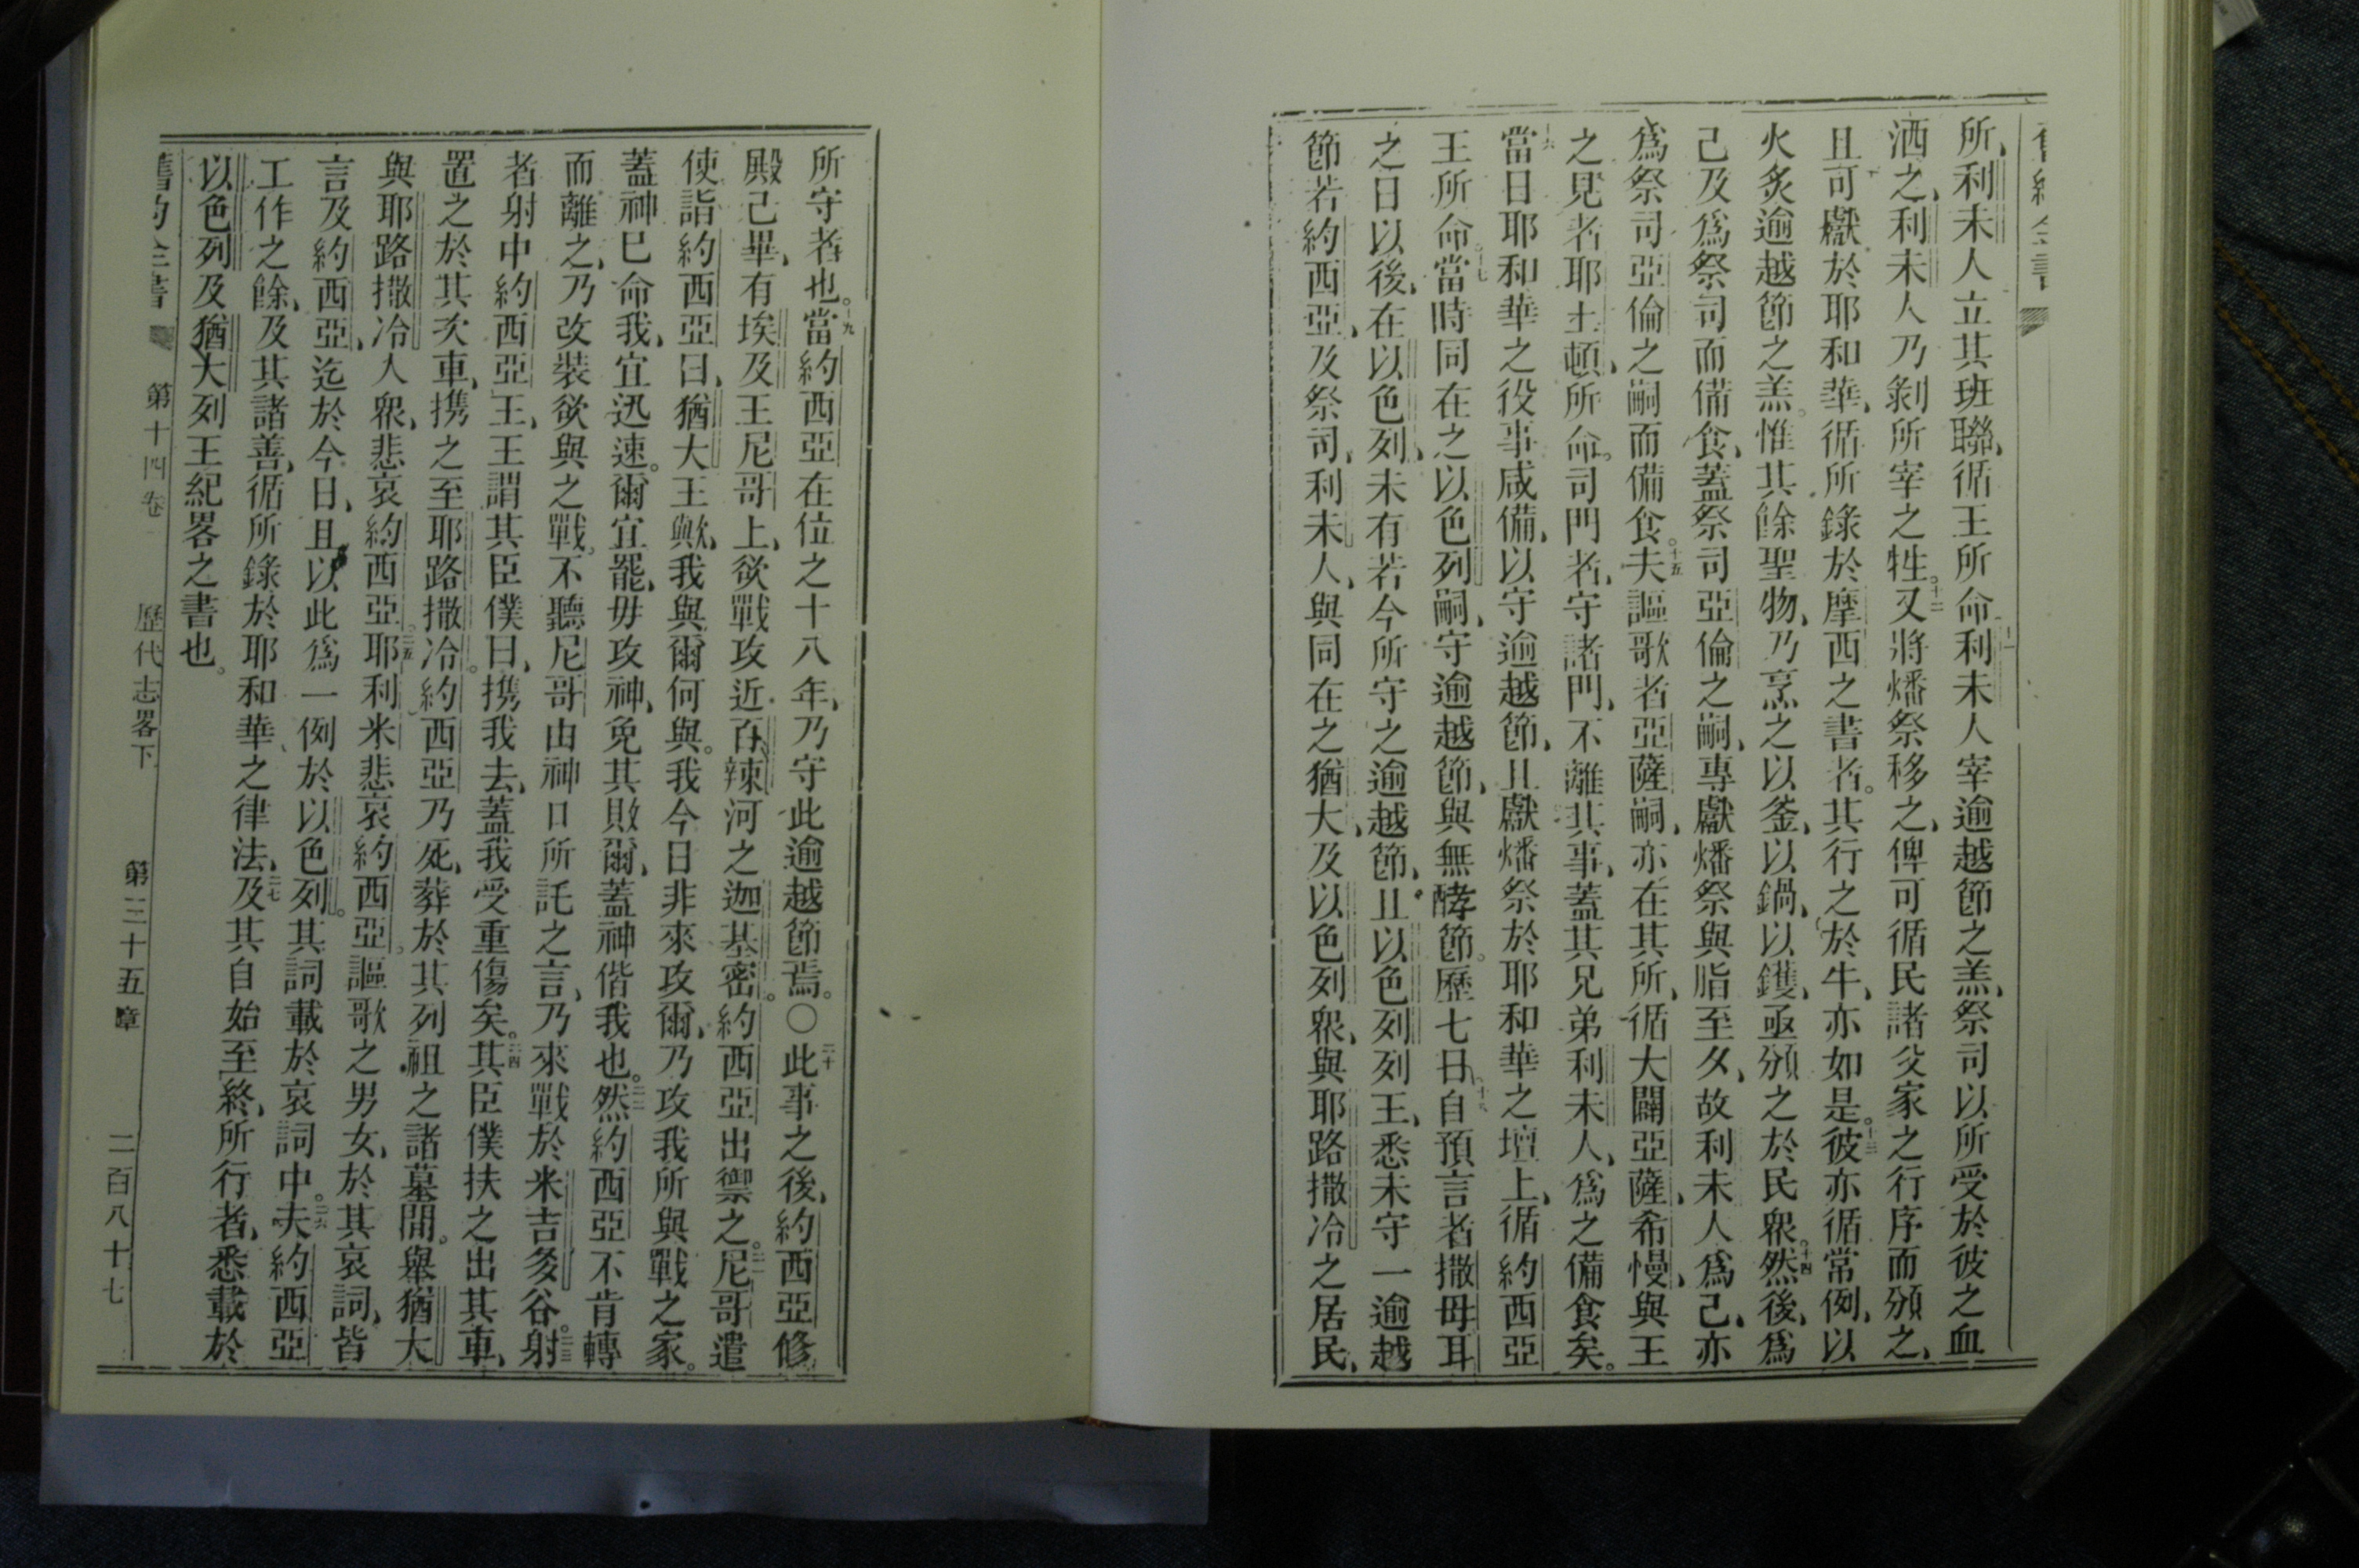 舊約全書
所、利未人立其班聯、循王所命十一利未人宰逾越節之羔、祭司以所受於彼之血
洒之、利未人乃剝所宰之牲。十二又將燔祭移之、俾可循民諸父家之行序而頒之、
且可獻於耶和華、循所錄於摩西之書者。其行之於牛、亦如是。十三彼亦循常例、以
火炙逾越節之羔。惟其餘聖物、乃烹之以釜、以鍋、以鑊、亟頒之於民眾。十四然後、爲
己及爲祭司而備食、蓋祭司亞倫之嗣、專獻燔祭與脂至夕、故利未人爲己、亦
爲祭司亞倫之嗣而備食。十五夫謳歌者亞薩嗣、亦在其所、循大闢亞薩、希慢、與王
之見者耶土頓、所命。司門者、守諸門、不離其事、蓋其兄弟利未人、爲之備食矣。
十六當日耶和華之役事咸備、以守逾越節、且獻燔祭於耶和華之壇上、循約西亞
王所命。十七當時同在之以色列嗣、守逾越節、與無酵節。歷七日。十八自預言者撒母耳
之日以後、在以色列、未有若今所守之逾越節、且以色列列王、悉未守一逾越
節若約西亞、及祭司、利未人、與同在之猶大、及以色列眾、與耶路撒冷之居民、
所守者也。十九當約西亞在位之十八年、乃守此逾越節焉。〇二十此事之後、約西亞修
殿己畢、有埃及王尼哥上、欲戰攻近百辣河之迦基密。約西亞出禦之。二一尼哥遣
使詣約西亞曰、猶大王歟、我與爾何與。我今日非來攻爾、乃攻我所與戰之家。
蓋神已命我、宜迅速。爾宜罷、毋攻神、免其敗爾、蓋神偕我也。二二然約西亞不肯轉
而離之、乃改裝欲與之戰。不聽尼哥由神口所託之言、乃來戰於米吉多谷。二三射
者射中約西亞王、王謂其臣僕曰、携我去、蓋我受重傷矣。二四其臣僕扶之出其車、
置之於其次車、携之至耶路撒冷。約西亞乃死、葬於其列祖之諸墓間。舉猶大
與耶路撒冷人眾、悲哀約西亞。二五耶利米悲哀約西亞。謳歌之男女、於其哀詞、皆
言及約西亞、迄於今日、且以此爲一例於以色列。其詞載於哀詞中。二六夫約西亞
工作之餘、及其諸善、循所錄於耶和華之律法、二七及其自始至終、所行者、悉載於
以色列及猶大列王紀畧之書也。
舊約全書 第十四卷 歷代志畧下 第三十五章 二百八十七